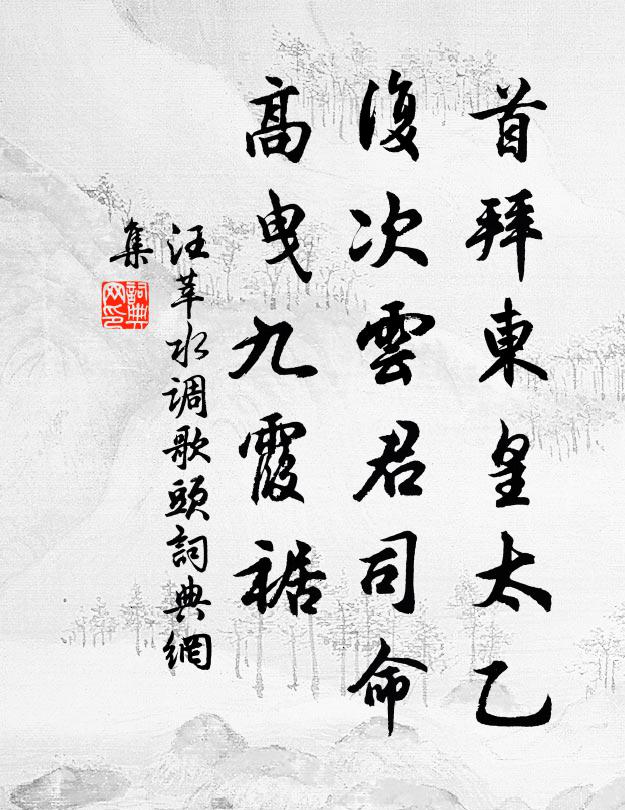 首拜東皇太乙
復次雲君司命
高曳九霞裾
汪莘水调歌頭詞典網
集
詞典
网印